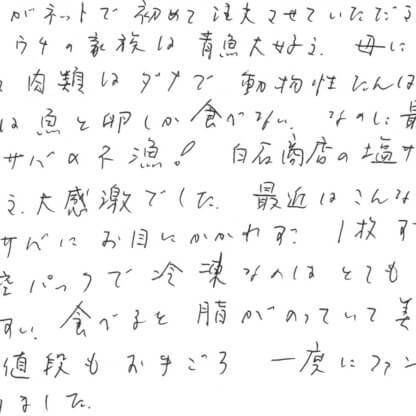 がネットで初めて注文させていただき
ウチの家族は青魚大好き。母に
肉類はダメで 動物性たんぱ
は魚と卵しか食べない。なのに最
サバの不漁! 白石商店の塩サ
え、大感激でした。最近はこんな
サバにお目にかかれず、1枚ず
空パックで冷凍なのはとても
すい。食べると脂がのっていて美
値段もお手ごろ 一度にファン
りました。